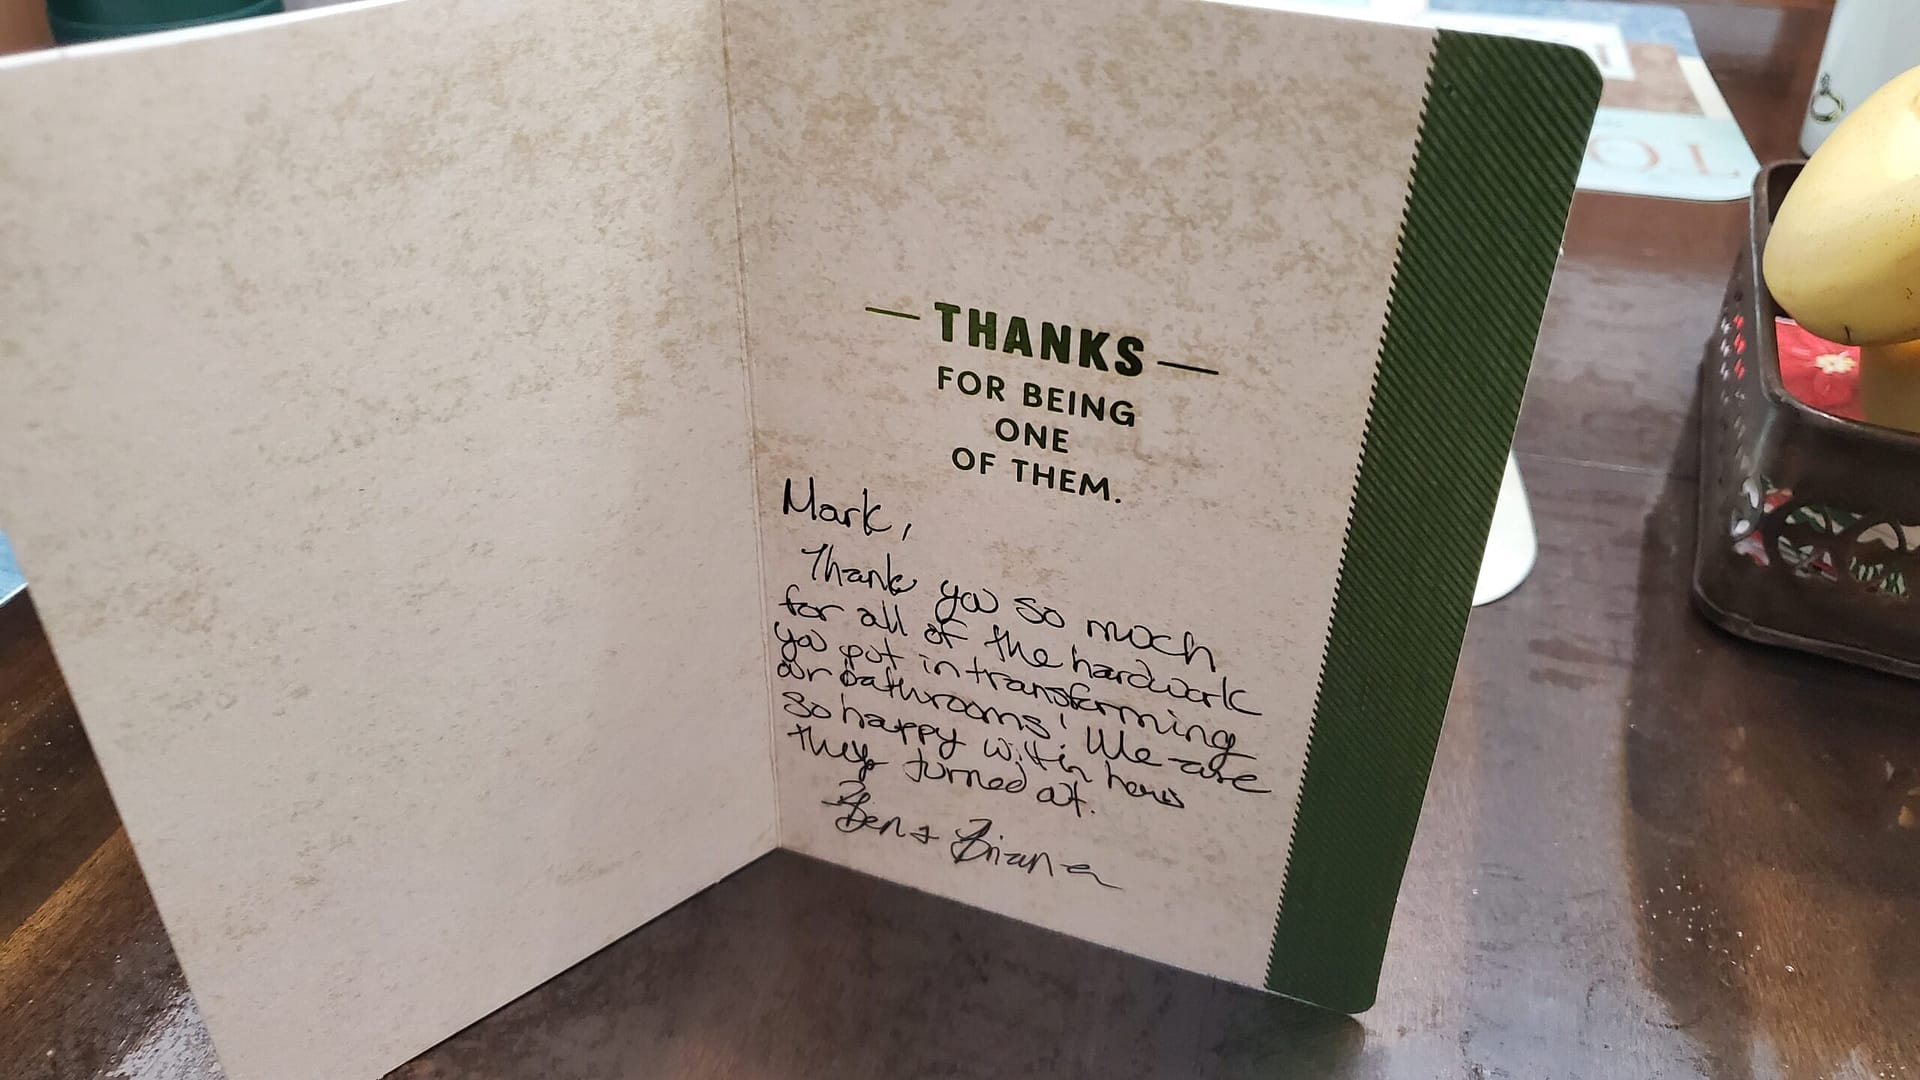 THANKS
FOR BEING
ONE
OF THEM.
Mark,
Thank you so much
for all of the hardwork
you put in transforming
our bathrooms! We are
so happy with how
they turned out.
Ben & Briana
TO